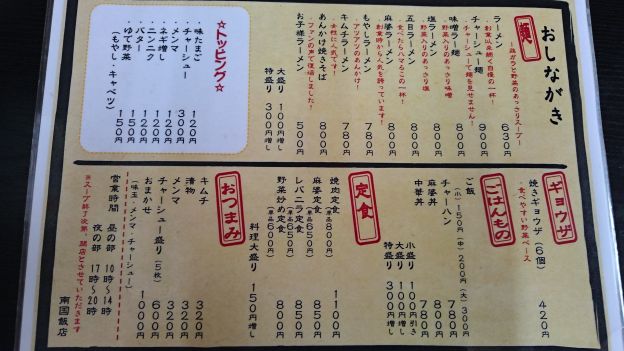 おしながき
麺
～鶏ガラと野菜のあっさりスープ～
ラーメン 630円
・創業以来続く自慢の一杯！
チャーシュー麺 900円
・チャーシューで麺を見せません！
味噌ラー麺 800円
・野菜入りのあっさり味噌
塩ラーメン 800円
・野菜入りのあっさり塩
五目ラーメン 800円
・食べたらハマるこの一杯！
麻婆ラーメン 800円
・創業時から人気を誇っています！
もやしラーメン 780円
・アツアツのあんかけ！
キムチラーメン 780円
・女性に人気です！
あんかけ焼きそば 800円
・ファンの声で復活しました！
お子様ラーメン 500円
大盛り 100円増し
特盛り 300円増し
☆トッピング☆
・味たまご 120円
・チャーシュー 300円
・メンマ 120円
・ネギ増し 120円
・ニンニク 120円
・バター 120円
・ゆで野菜 150円
（もやし・キャベツ） 150円
ギョウザ
焼きギョウザ（6個） 420円
・食べやすい野菜ベース
ごはんもの
ご飯
（小）150円（中）200円（大）300円
チャーハン 780円
麻婆丼 780円
中華丼 800円
小盛り 100円引き
大盛り 100円増し
特盛り 300円増し
定食
焼肉定食 1100円
（単品800円）
麻婆定食 850円
（単品650円）
レバニラ定食 850円
（単品650円）
野菜炒め定食 800円
（単品600円）
料理大盛り 150円増し
おつまみ
キムチ 320円
漬物 320円
メンマ 320円
チャーシュー盛り（5枚） 600円
おまかせ 1000円
（味玉・メンマ・チャーシュー）
営業時間 昼の部 10時～14時
夜の部 17時～20時
※スープ終了次第、閉店とさせていただきます
南国飯店